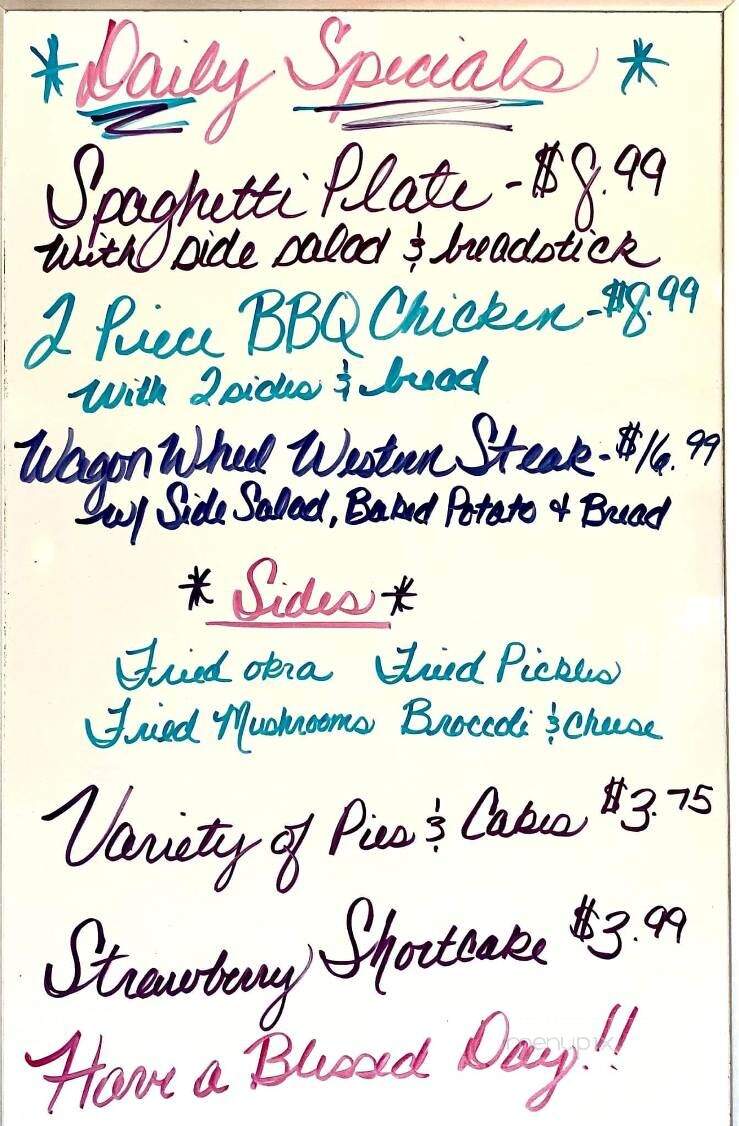 * Daily Specials *
Spaghetti Plate - $8.99
With side salad & breadstick
2 Piece BBQ Chicken - $8.99
With 2 sides & bread
Wagon Wheel Western Steak - $16.99
w/ Side Salad, Baked Potato & Bread
* Sides *
Fried okra Fried Pickles
Fried Mushrooms Broccoli & Cheese
Variety of Pies & Cakes $3.75
Strawberry Shortcake $3.99
Have a Blessed Day!!
menupix